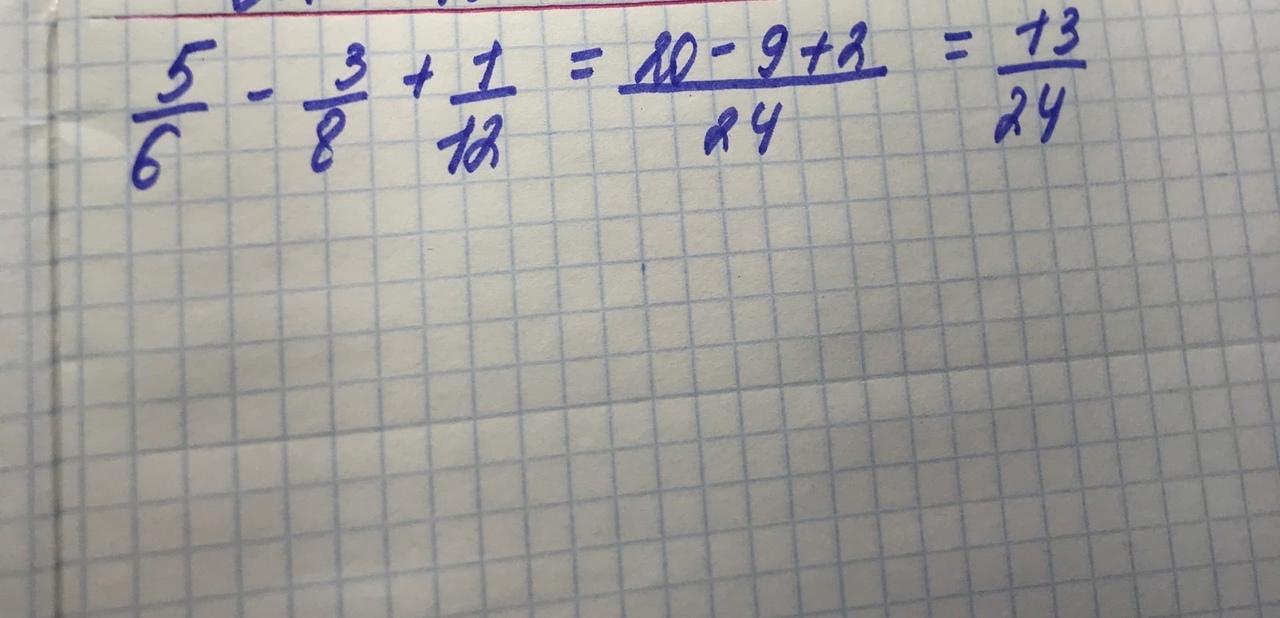 5/6 - 3/8 + 1/12 = (20 - 9 + 2)/24 = 13/24